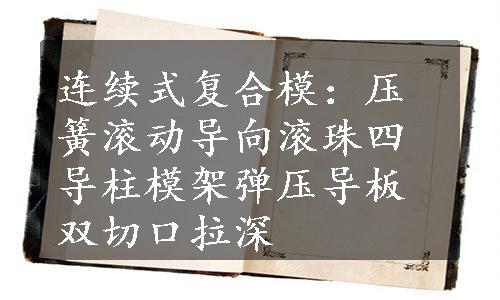 连续式复合模：压
簧滚动导向滚珠四
导柱模架弹压导板
双切口拉深